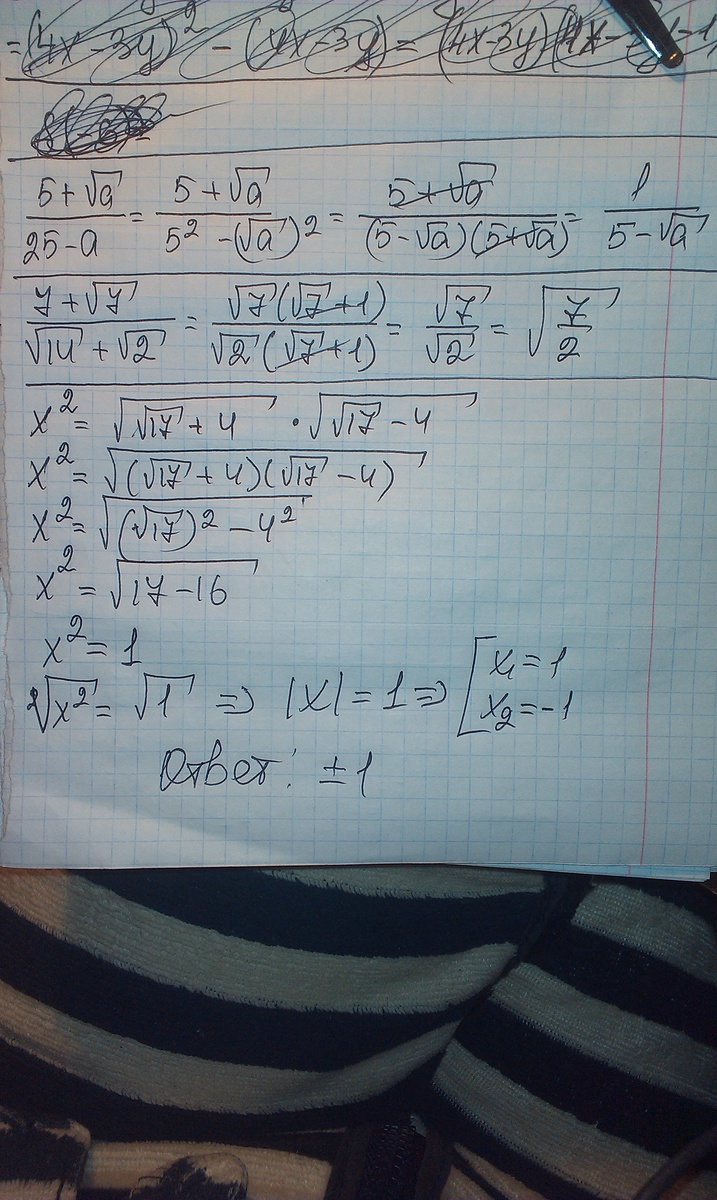 = (4x - 3y)² - (4x - 3y) = (4x - 3y)(4x - 3y - 1)
(5+√a)/(25-a) = (5+√a)/(5² -(√a)²) = (5+√a)/((5-√a)(5+√a)) = 1/(5-√a)
(7+√7)/(√14+√2) = (√7(√7+1))/(√2(√7+1)) = √7/√2 = √(7/2)
x² = √(√17+4) · √(√17-4)
x² = √((√17+4)(√17-4))
x² = √((√17)² - 4²)
x² = √(17-16)
x² = 1
²√(x²) = √1 => |x| = 1 => [x₁ = 1
x₂ = -1
Ответ: ±1